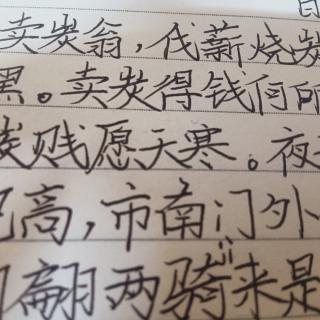 卖炭翁,伐薪烧炭
黑。卖炭得钱何所
炭贱愿天寒。夜
高,市南门外
翩两骑来是